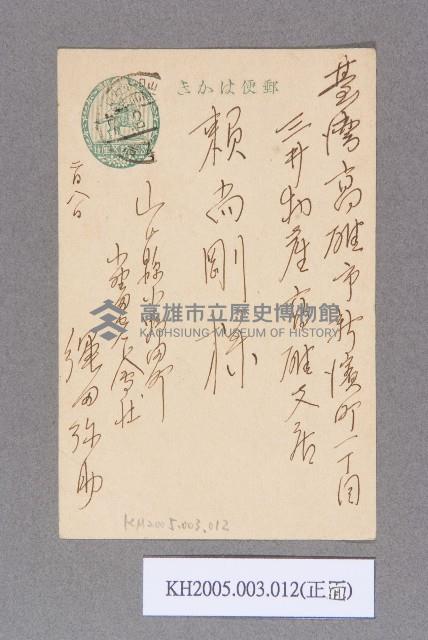 郵便はかき
臺灣高雄市新濱町一丁目
三井物産高雄支店
賴尚剛様
山口縣小野田町
小野田
縄田弥助
高雄市立歷史博物館
KAOHSIUNG MUSEUM OF HISTORY
KH2005.003.012
KH2005.003.012(正面)